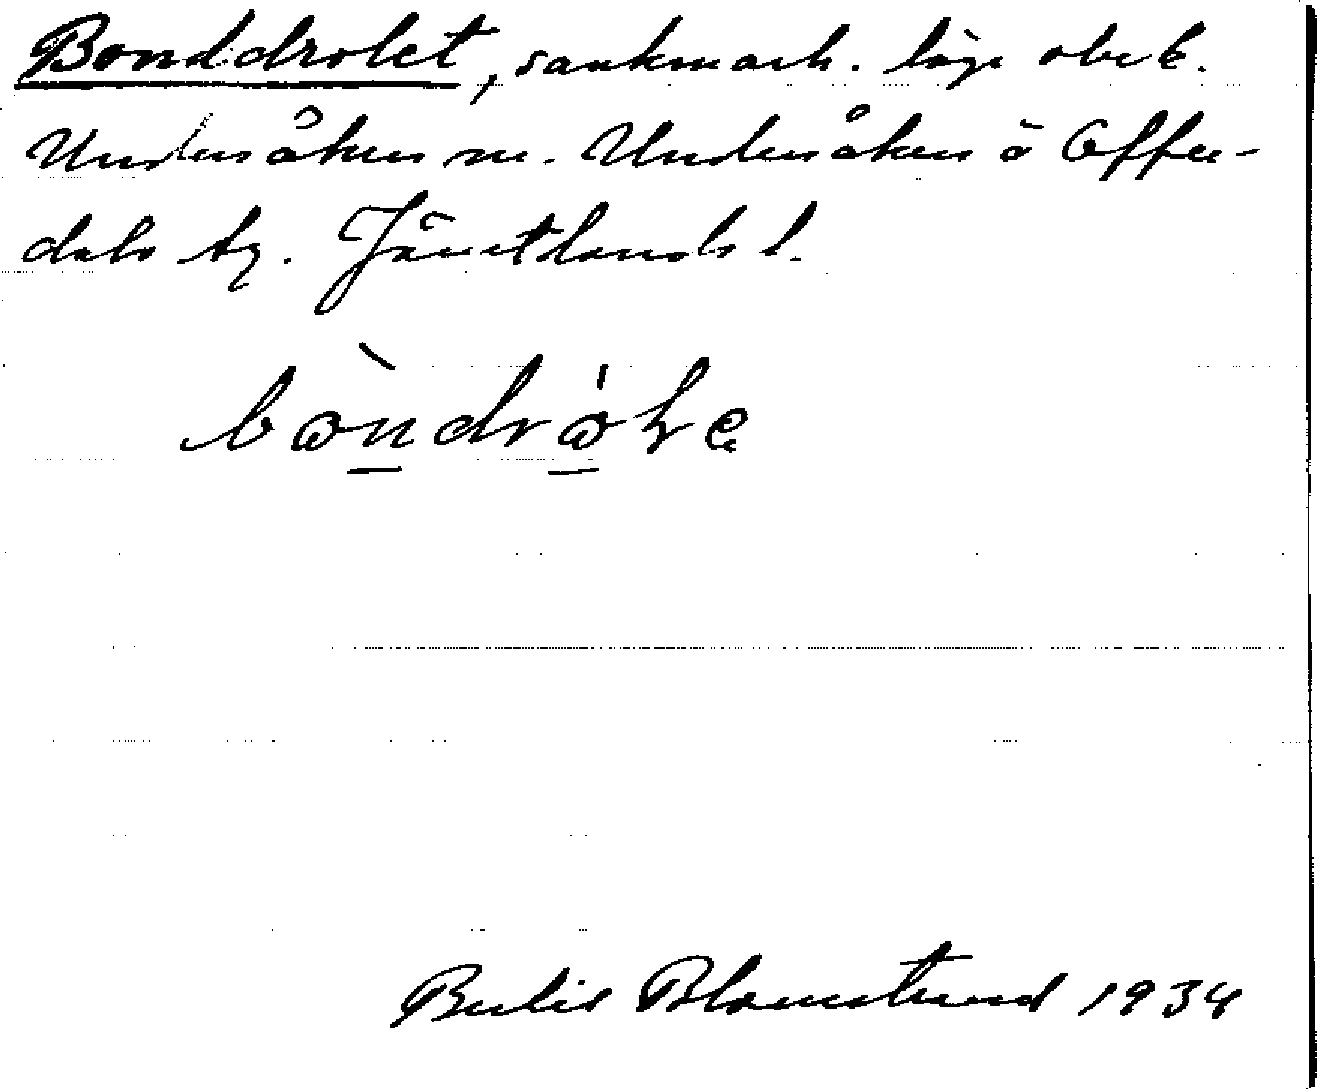 Bonddrolet, sankmark. läge obek.
Undersåkers sn. Undersåkers o Offer-
dals tg. Jämtlands l.
Bertil Blomstrand 1934